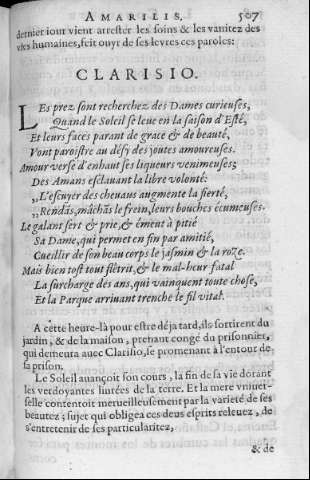 AMARILIS, 507
dernier iour vient arrester les soins & les vanitez des
vies humaines, feit ouyr de ses leures ces paroles:
CLARISIO.
LEs prez sont recherchez des Dames curieuses,
Quand le Soleil se leue en la saison d'Esté,
Et leurs faces parant de grace & de beauté,
Vont paroistre au désy des joutes amoureuses.
Amour verse d'enhaut ses liqueurs venimeuses;
Des Amans esclauant la libre volonté:
,,L'escuyer des cheuaus augmente la fierté,
,,Rendãs, mâchãs le frein, leurs bouches écumeuses.
Le galant sert & prie, & émeut à pitié
Sa Dame, qui permet en fin par amitié,
Cueillir de son beau corps le jasmin & la roze.
Mais bien tost tout flétrit, & le mal-heur fatal
La surcharge des ans, qui vainquent toute chose,
Et la Parque arriuant trenche le fil vital.
A cette heure-là pour estre déja tard, ils sortirent du
jardin, & de la maison, prenant congé du prisonnier,
qui demeura auec Clarisio, se promenant à l'entour de
sa prison.
Le Soleil auançoit son cours, la fin de sa vie dorant
les verdoyantes lintées de la terre. Et la mere vniuer-
selle contentoit merueilleusement par la varieté de ses
beautez; sujet qui obligea ces deus esprits releuez, de
s'entretenir de ses particularitez,
& de